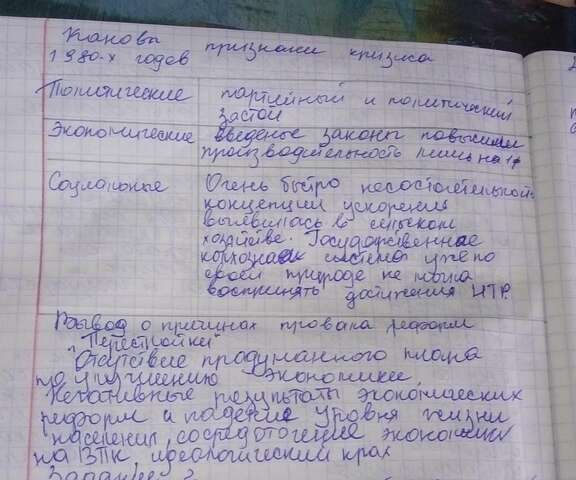 Каковы признаки кризиса
1980-х годов
Политические партийный и политический
застой
Экономические введеные законы повысили
производительность лишь на 1%
Социальные Очень быстро несостоятельность
концепции ускорения
выявилась в сельском
хозяйстве. Государственнае
колхозная система уже по
своей природе не могла
воспринять достижения НТР.
Вывод о причинах провала реформ
"Перестройки"
Отсутствие продуманного плана
по улучшению экономики,
Негативные результаты экономических
реформ и падение уровня жизни
населения, сосредоточение экономики
на ВПК, идеологический крах
Задание 2